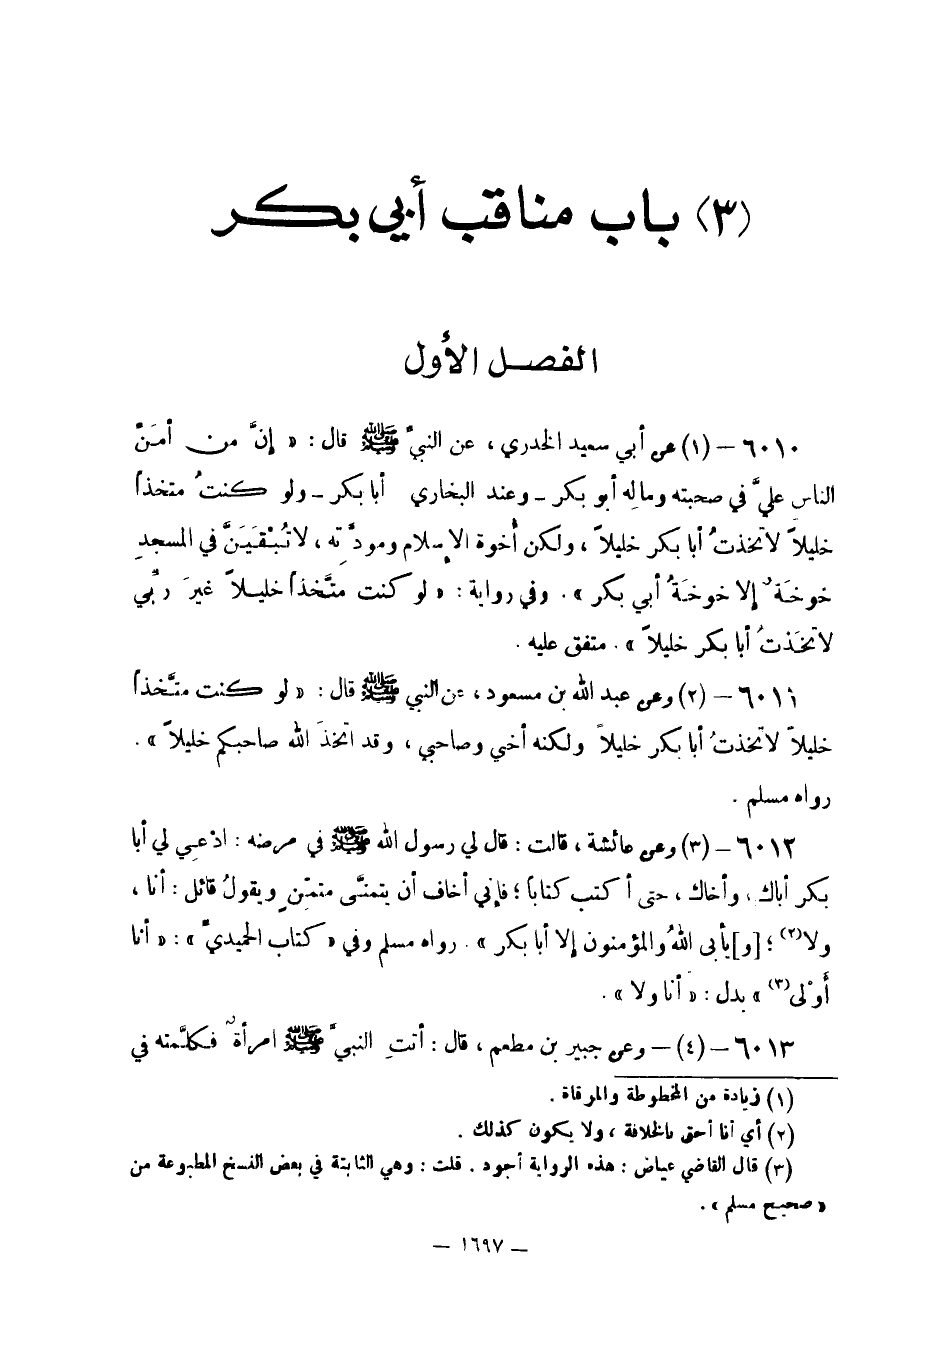 (٣) باب مناقب أبي بكر
الفصل الأول
٦٠١٠ – (١) عن أبي سعيد الخدري ، عن النبيِّ ﷺ قال : « إنَّ من أمَنِّ
الناس عليَّ في صحبته وماله أبو بكر – وعند البخاري أبا بكر – ولو كنتُ متخذاً
خليلاً لاتخذتُ أبا بكر خليلاً ، ولكن أُخوة الإسلام ومودَّته ، لا تُبْقَيَنَّ في المسجدِ
خوخَةٌ إلا خوخَةُ أبي بكر » . وفي رواية : « لو كنت متَّخذاً خليلاً غيرَ ربِّي
لاتخَذتُ أبا بكر خليلاً » . متفق عليه .
٦٠١١ – (٢) وعن عبد الله بن مسعود ، عن النبي ﷺ قال : « لو كنت متَّخذاً
خليلاً لاتخذتُ أبا بكر خليلاً ولكنه أخي وصاحبي ، وقد اتخذَ الله صاحبكم خليلاً » .
رواه مسلم .
٦٠١٢ – (٣) وعن عائشة ، قالت : قال لي رسول الله ﷺ في مرضه : ادْعي لي أبا
بكر أباك ، وأخاك ، حتى أكتب كتاباً ؛ فإني أخاف أن يتمنَّى متمنٍّ ويقولُ قائل : أنا ،
ولا(٢) ؛ [و]يأبى اللهُ والمؤمنون إلا أبا بكر » . رواه مسلم وفي « كتاب الحميديِّ » : « أنا
أَوْلى(٣) » بدل : « أنا ولا » .
٦٠١٣ – (٤) – وعن جبير بن مطعم ، قال : أتتِ النبيَّ ﷺ امرأةٌ فكلَّمته في
(١) زيادة من المخطوطة والمرقاة .
(٢) أي أنا أحق بالخلافة ، ولا يكون كذلك .
(٣) قال القاضي عياض : هذه الرواية أجود . قلت : وهي الثابتة في بعض النسخ المطبوعة من
« صحيح مسلم » .
– ١٦٩٧ –